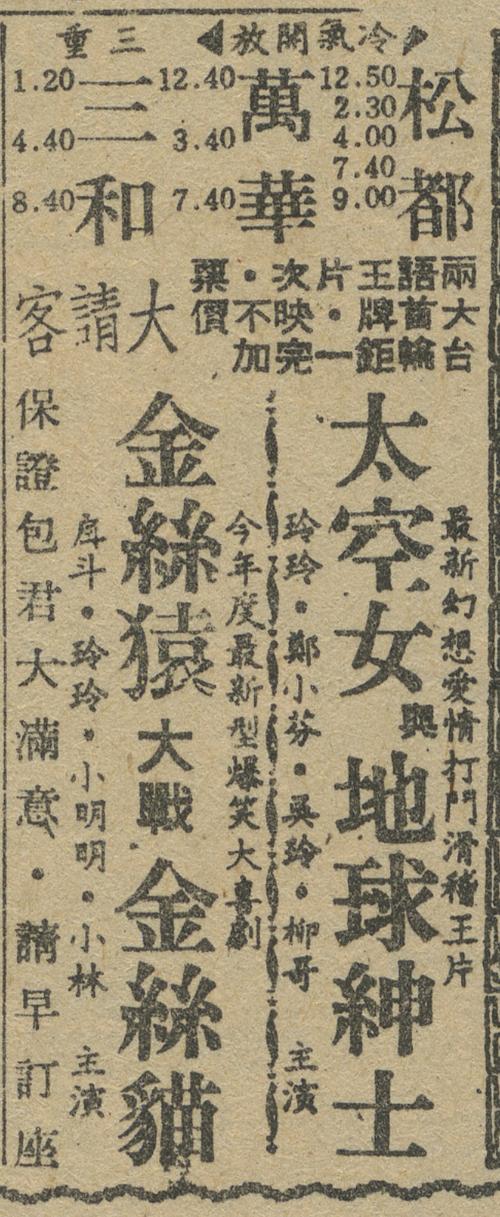 ◀冷氣開放▶
松都
12.50
2.30
4.00
7.40
9.00
萬華
12.40
3.40
7.40
三重
三和
1.20
4.40
8.40
兩大台
語首輪
王牌鉅
片・一
次映完
・不加
票價
大請客
最新幻想愛情打鬥滑稽王片
太空女與地球紳士
玲玲・鄭小芬・吳玲・柳哥 主演
今年度最新型爆笑大喜劇
金絲猿大戰金絲貓
戽斗・玲玲・小明明・小林 主演
保證包君大滿意・請早訂座